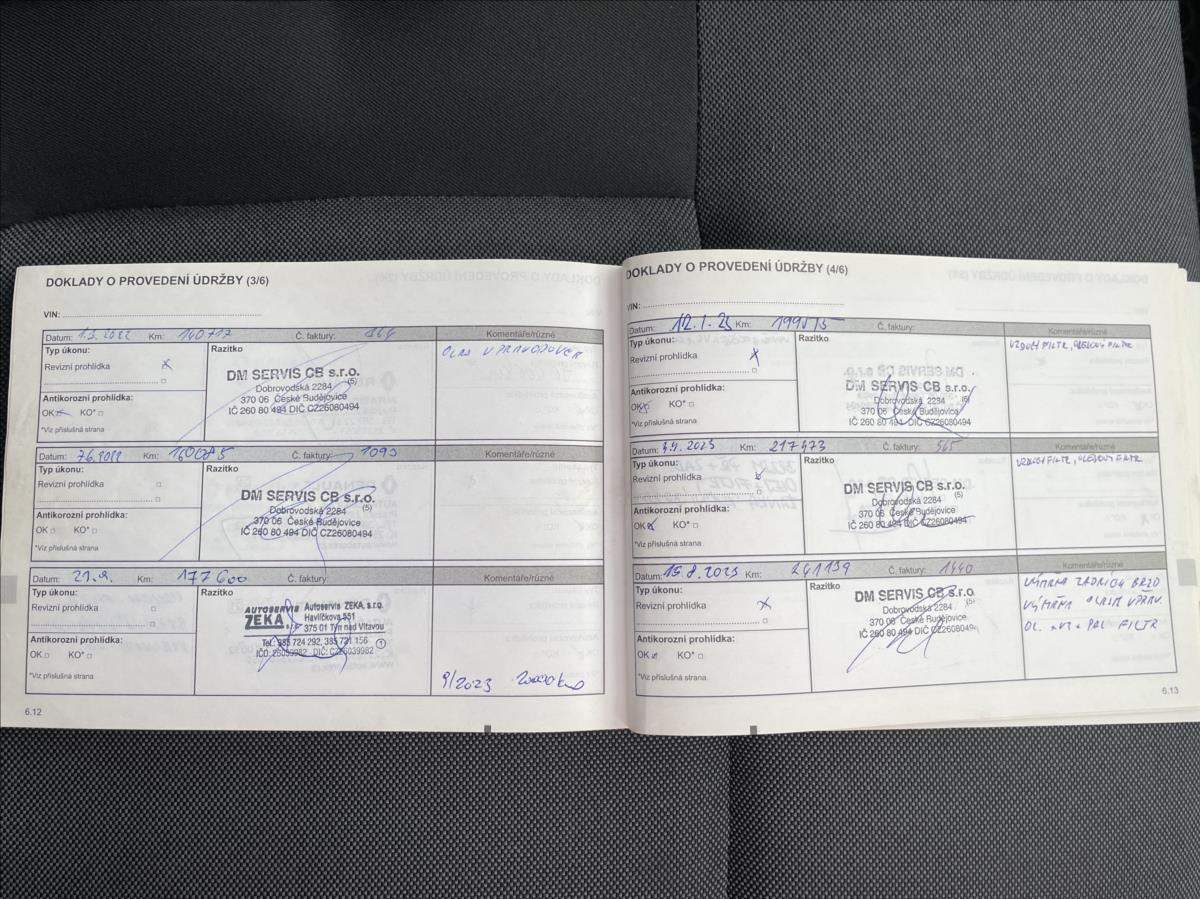 DOKLADY O PROVEDENÍ ÚDRŽBY (3/6)
VIN:
Datum: 1.3.2022 Km: 140717 Č. faktury: Komentáře/různé
Typ úkonu:
Razítko
Revizní prohlídka X
DM SERVIS CB s.r.o.
Dobrovodská 2284 (5)
370 06 České Budějovice
IČ 260 80 494 DIČ CZ26080494
Antikorozní prohlídka:
OK KO*
*Viz příslušná strana
Datum: 7.6.2022 Km: 160085 Č. faktury: 1093 Komentáře/různé
Typ úkonu:
Razítko
Revizní prohlídka
DM SERVIS CB s.r.o.
Dobrovodská 2284 (5)
370 06 České Budějovice
IČ 260 80 494 DIČ CZ26080494
Antikorozní prohlídka:
OK KO*
*Viz příslušná strana
Datum: 21.9. Km: 177600 Č. faktury: Komentáře/různé
Typ úkonu:
Razítko
Revizní prohlídka
AUTOSERVIS ZEKA s.r.o.
Autoservis ZEKA, s.r.o.
Havlíčkova 551
375 01 Týn nad Vltavou
Tel.: 385 724 292, 385 721 156 (1)
IČO: 26039982 DIČ: CZ26039982
Antikorozní prohlídka:
OK KO*
*Viz příslušná strana
9/2023 200000 km
6.12
DOKLADY O PROVEDENÍ ÚDRŽBY (4/6)
VIN:
Datum: 12.1.23 Km: 199515 Č. faktury: Komentáře/různé
Typ úkonu:
Razítko
VZDUCH FILTR, OLEJOVÝ FILTR
Revizní prohlídka X
DM SERVIS CB s.r.o.
Dobrovodská 2284 (5)
370 06 České Budějovice
IČ 260 80 494 DIČ CZ26080494
Antikorozní prohlídka:
OK KO*
*Viz příslušná strana
Datum: 2023 Km: 217473 Č. faktury: 565 Komentáře/různé
Typ úkonu:
Razítko
VZDUCH FILTR, OLEJOVÝ FILTR
Revizní prohlídka
DM SERVIS CB s.r.o.
Dobrovodská 2284 (5)
370 06 České Budějovice
IČ 260 80 494 DIČ CZ26080494
Antikorozní prohlídka:
OK KO*
*Viz příslušná strana
Datum: 15.8.2023 Km: 241139 Č. faktury: 1440 Komentáře/různé
Typ úkonu:
Razítko
VÝMĚNA ZADNÍCH BRZD
VÝMĚNA OLEJE VPŘAV.
OL. + VZ + PAL FILTR
Revizní prohlídka X
DM SERVIS CB s.r.o.
Dobrovodská 2284 (5)
370 06 České Budějovice
IČ 260 80 494 DIČ CZ26080494
Antikorozní prohlídka:
OK KO*
*Viz příslušná strana
6.13